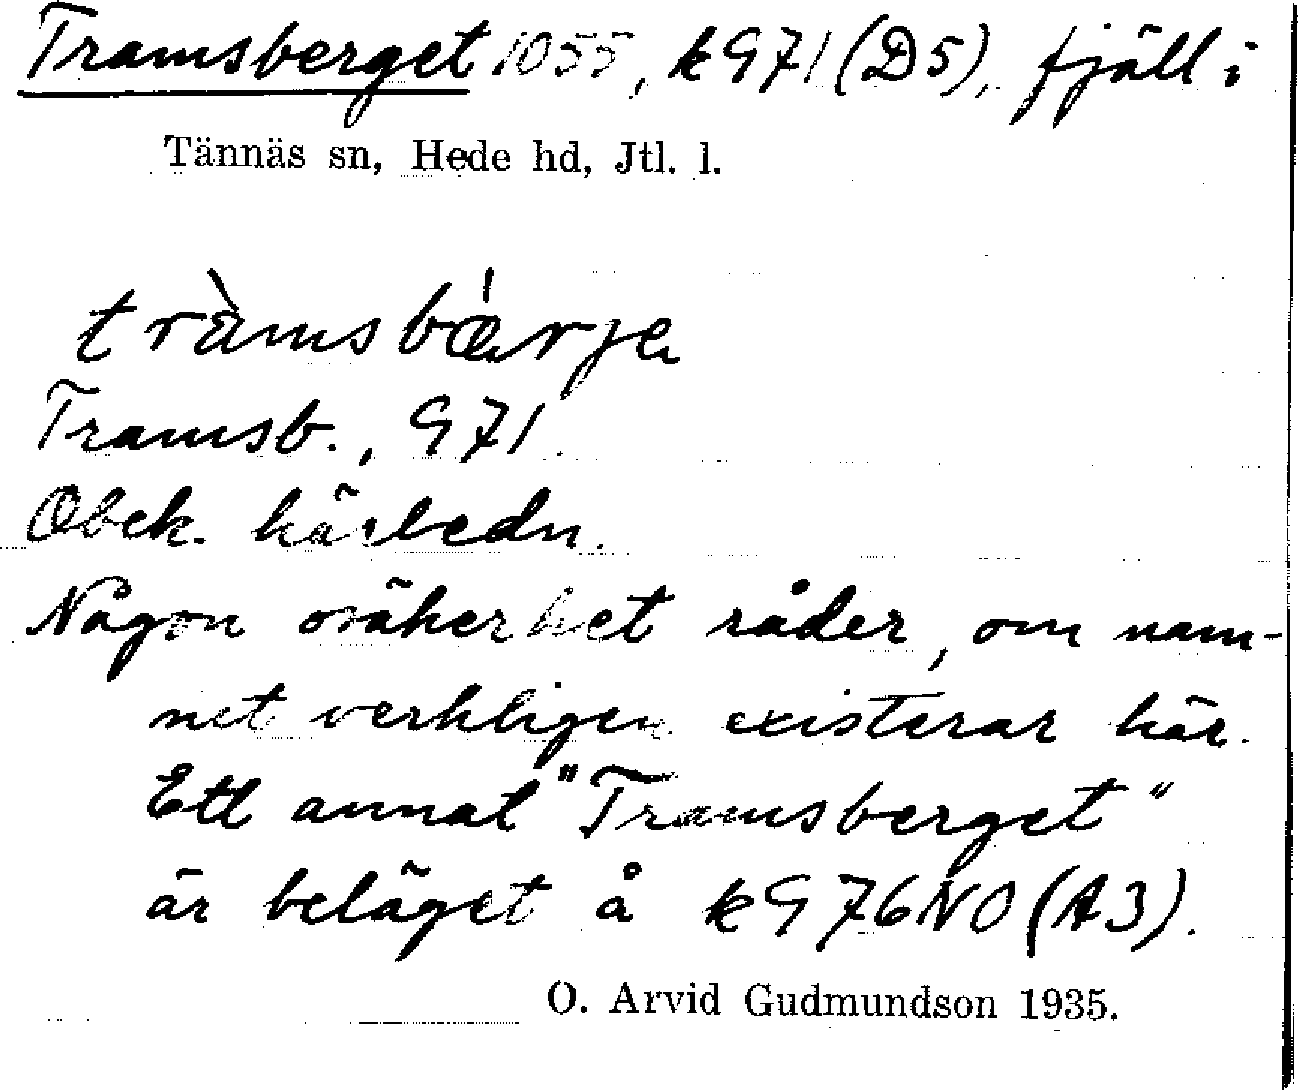 Tramsberget 1055, k971 (D5), fjäll i
Tännäs sn, Hede hd, Jtl. l.
tràmsbǽrjа
Tramsb., 971
Obek. härledn.
Någon osäkerhet råder, om nam-
net verkligen existerar här.
Ett annat "Tramsberget"
är beläget å k976NO (A3).
O. Arvid Gudmundson 1935.